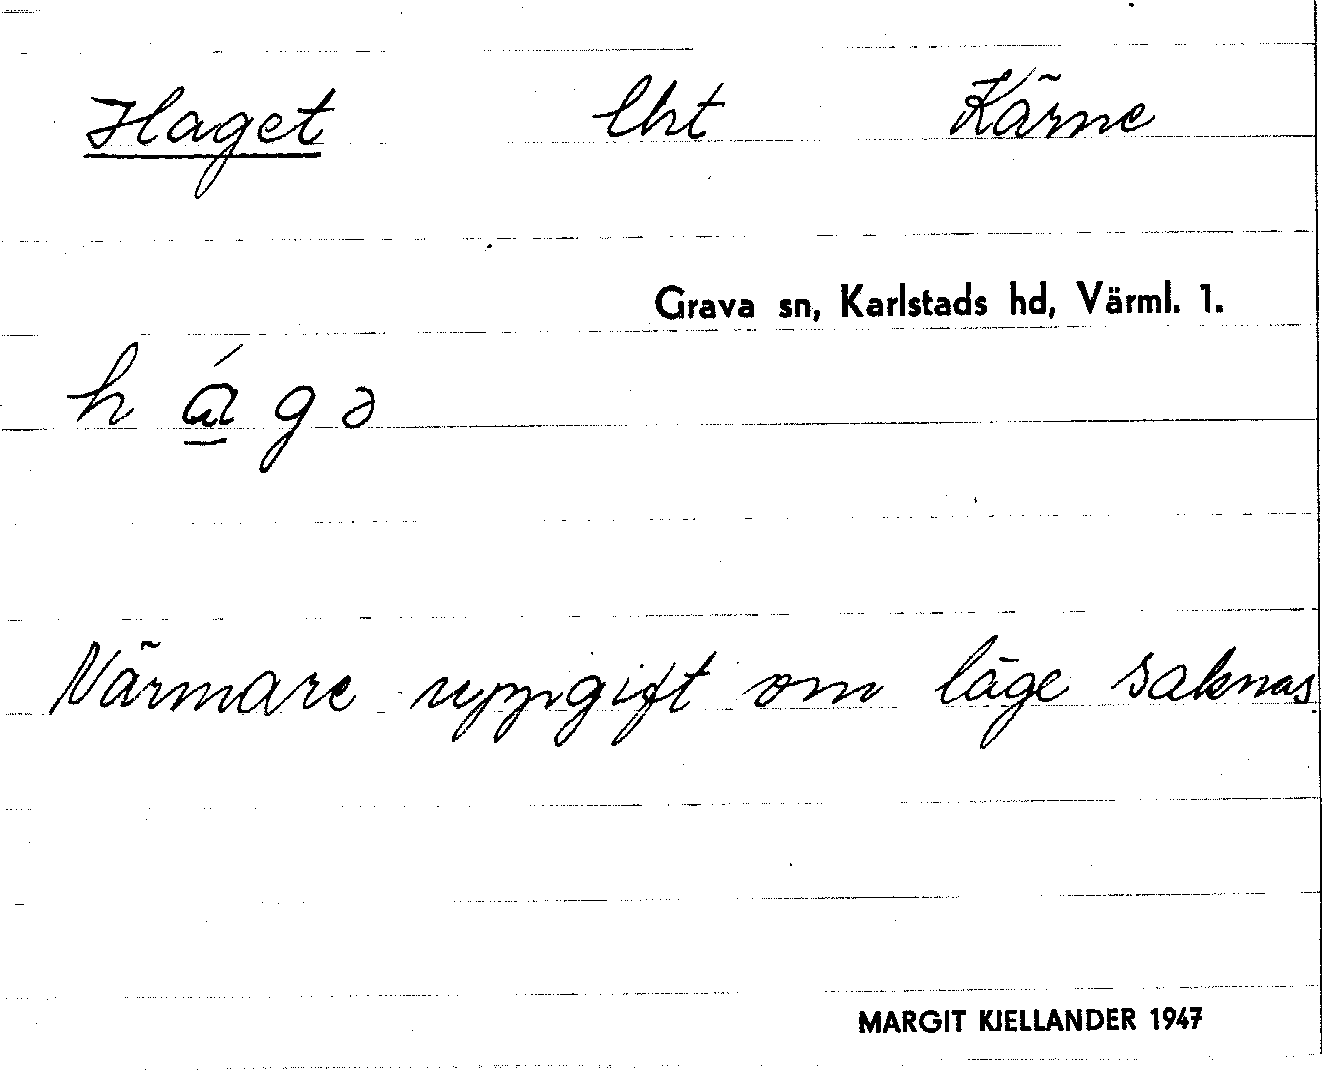 Haget lht Kärne
Grava sn, Karlstads hd, Värml. 1.
h á̱ g ə
Närmare uppgift om läge saknas
MARGIT KJELLANDER 1947